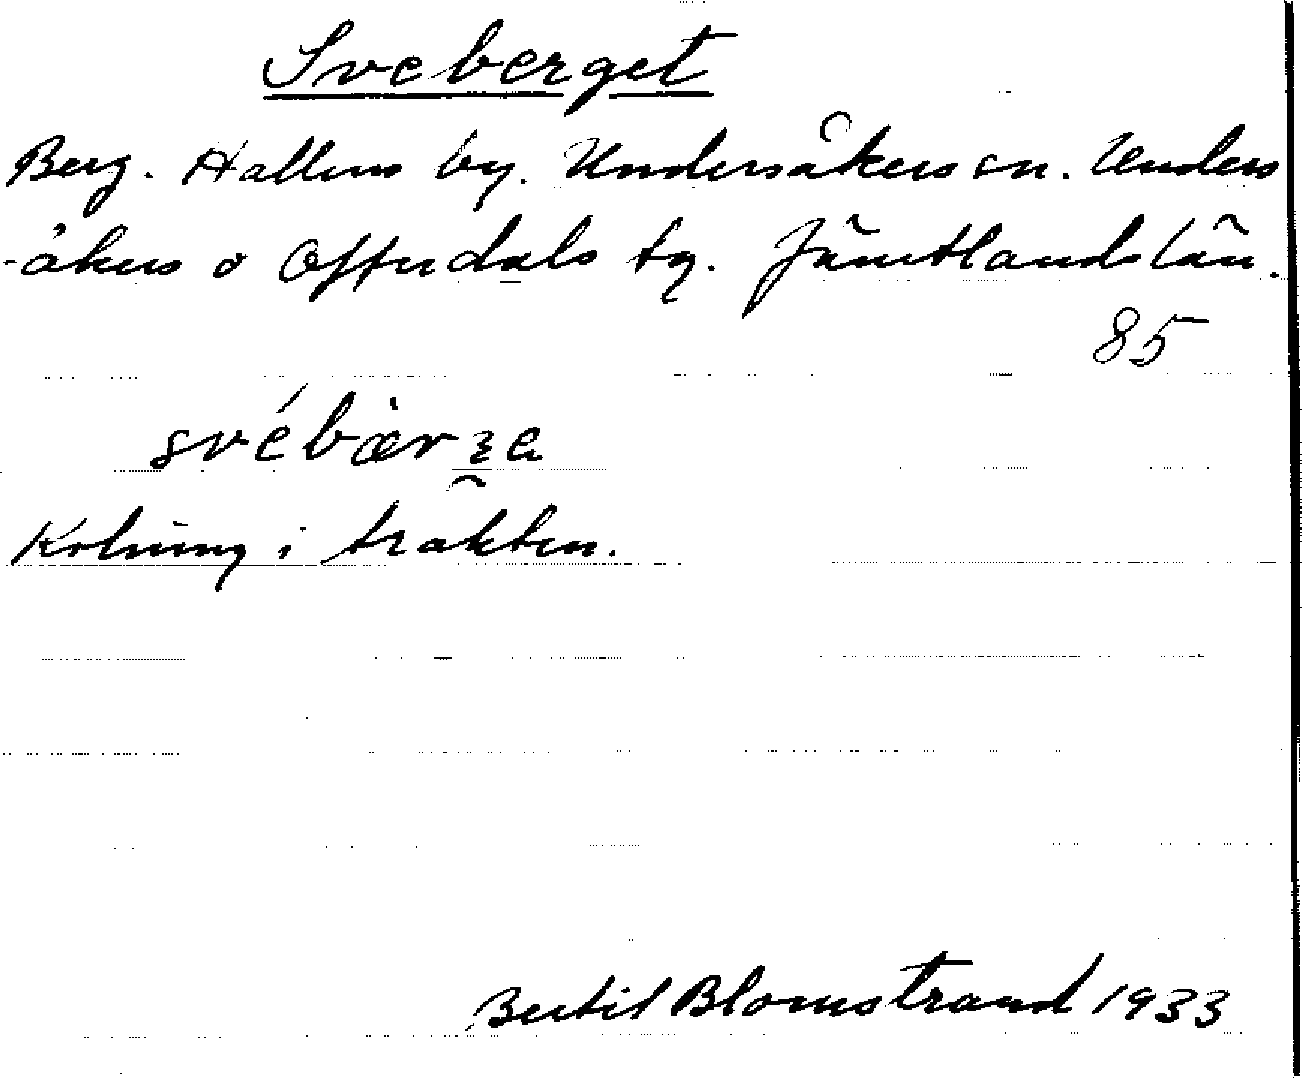 Sveberget
Berg. Hallens by. Undersåkers sn. Unders
-åkers o Offerdals tg. Jämtlands län.
85
svébær
Kolning i trakten.
Bertil Blomstrand 1933